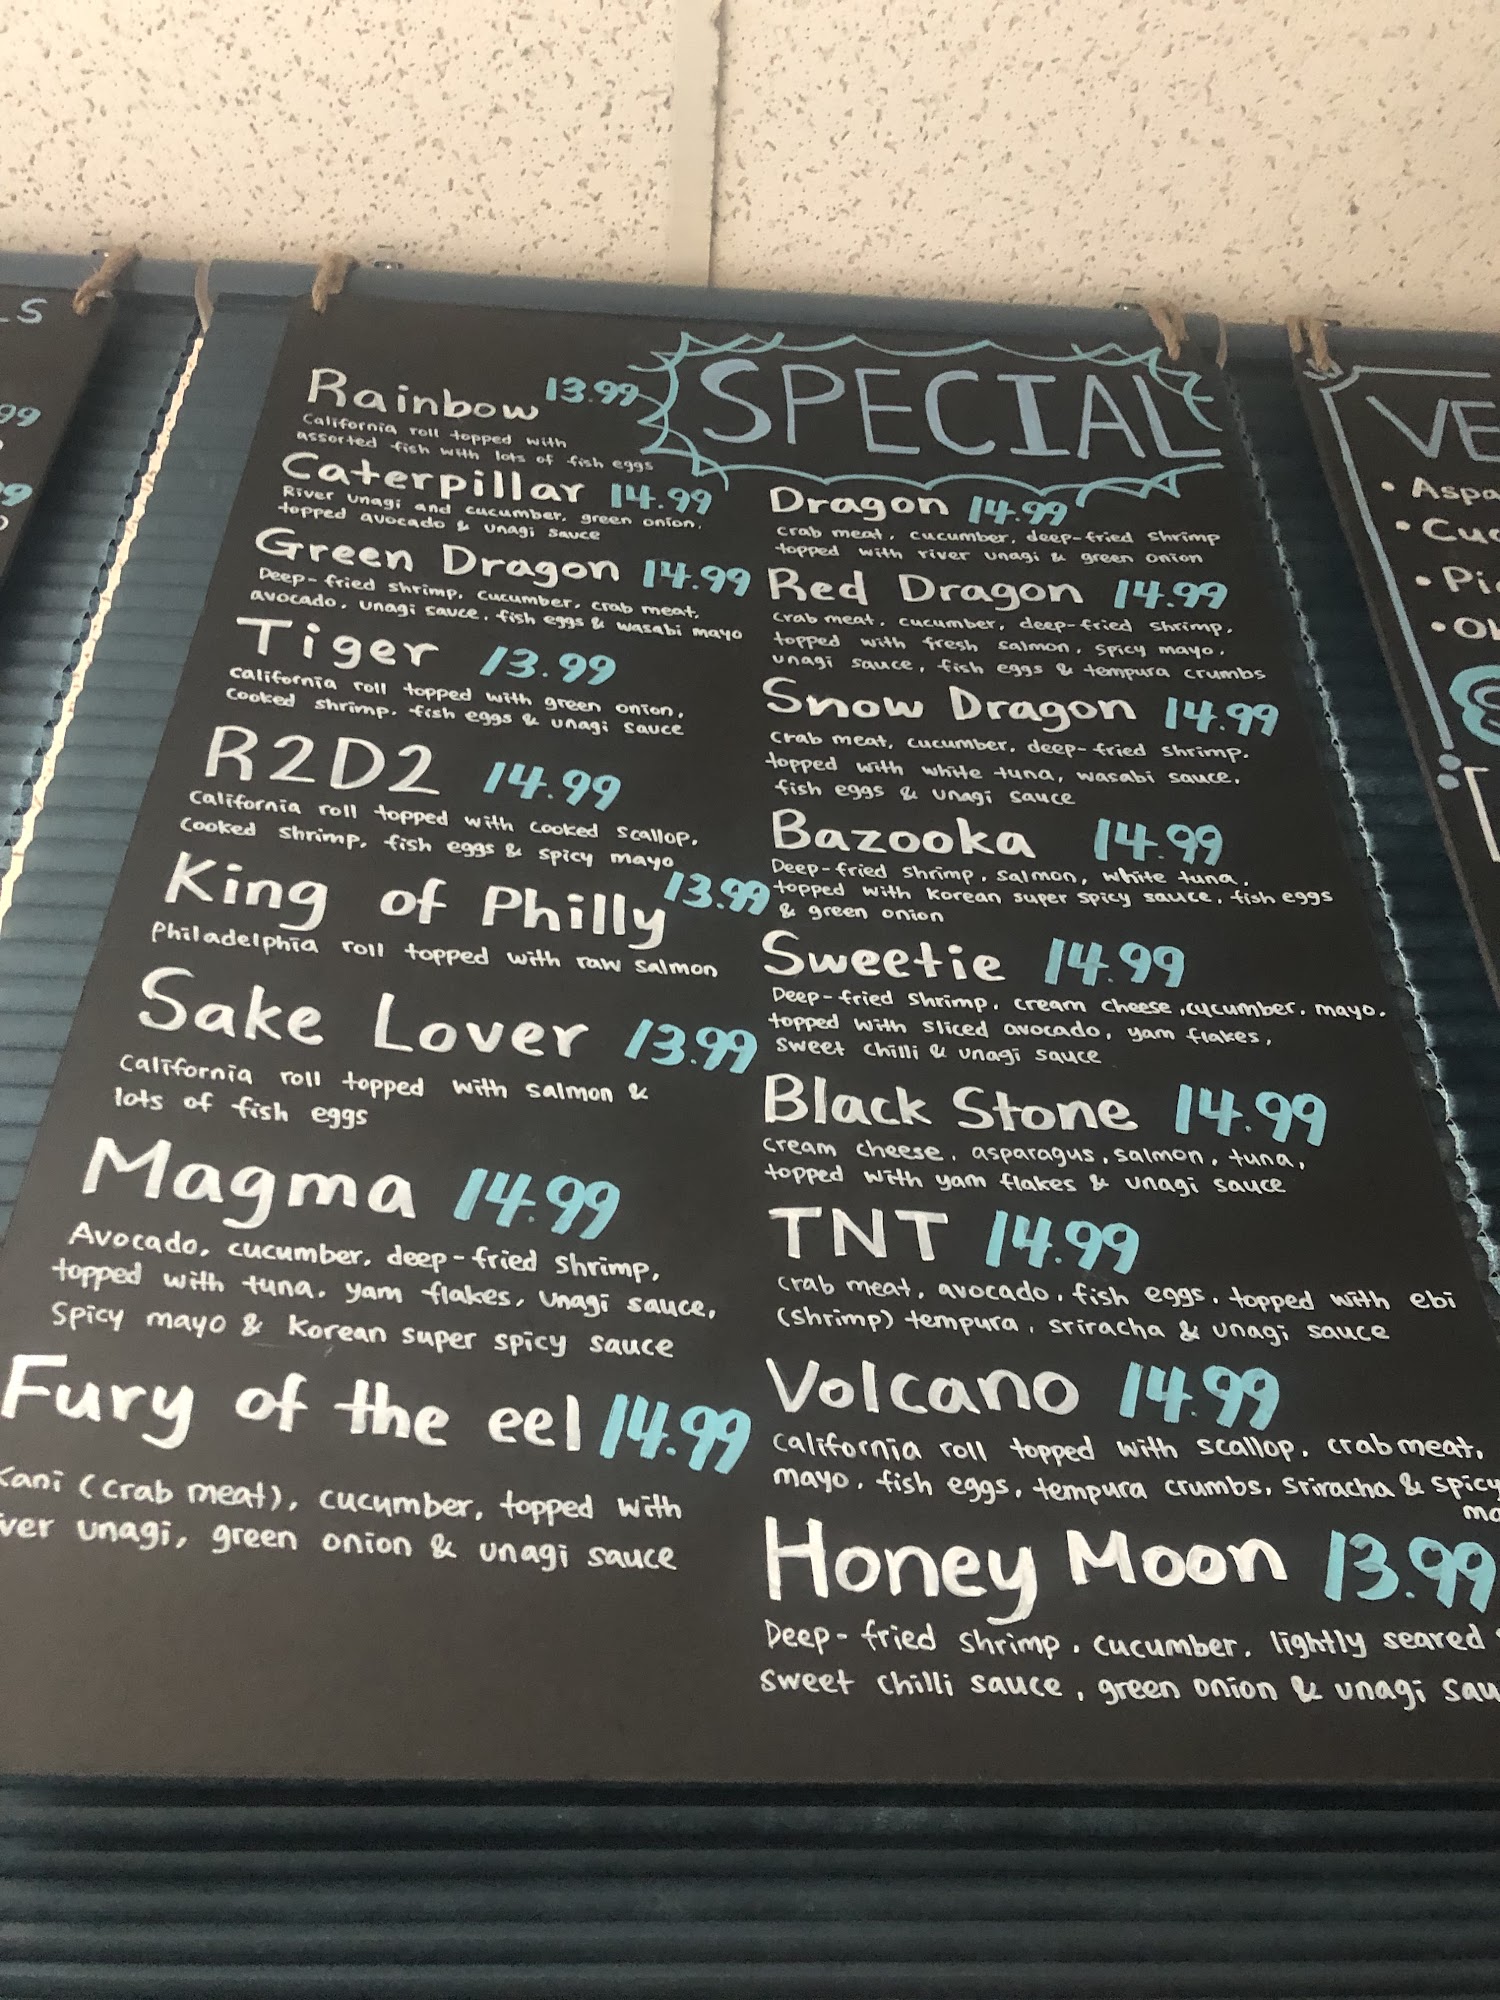 LS
99
99
SPECIAL
Rainbow 13.99
California roll topped with
assorted fish with lots of fish eggs
Caterpillar 14.99
River unagi and cucumber, green onion,
topped avocado & unagi sauce
Green Dragon 14.99
Deep-fried shrimp, cucumber, crab meat,
avocado, unagi sauce, fish eggs & wasabi mayo
Tiger 13.99
California roll topped with green onion,
cooked shrimp, fish eggs & unagi sauce
R2D2 14.99
California roll topped with cooked scallop,
cooked shrimp, fish eggs & spicy mayo
King of Philly 13.99
Philadelphia roll topped with raw salmon
Sake Lover 13.99
California roll topped with salmon &
lots of fish eggs
Magma 14.99
Avocado, cucumber, deep-fried shrimp,
topped with tuna, yam flakes, unagi sauce,
spicy mayo & Korean super spicy sauce
Fury of the eel 14.99
Kani (crab meat), cucumber, topped with
ver unagi, green onion & unagi sauce
Dragon 14.99
crab meat, cucumber, deep-fried shrimp
topped with river unagi & green onion
Red Dragon 14.99
crab meat, cucumber, deep-fried shrimp,
topped with fresh salmon, spicy mayo,
unagi sauce, fish eggs & tempura crumbs
Snow Dragon 14.99
crab meat, cucumber, deep-fried shrimp,
topped with white tuna, wasabi sauce,
fish eggs & unagi sauce
Bazooka 14.99
Deep-fried shrimp, salmon, white tuna,
topped with Korean super spicy sauce, fish eggs
& green onion
Sweetie 14.99
Deep-fried shrimp, cream cheese, cucumber, mayo,
topped with sliced avocado, yam flakes,
sweet chilli & unagi sauce
Black Stone 14.99
cream cheese, asparagus, salmon, tuna,
topped with yam flakes & unagi sauce
TNT 14.99
crab meat, avocado, fish eggs, topped with ebi
(shrimp) tempura, sriracha & unagi sauce
Volcano 14.99
California roll topped with scallop, crab meat,
mayo, fish eggs, tempura crumbs, sriracha & spicy
ma
Honey Moon 13.99
Deep-fried shrimp, cucumber, lightly seared
sweet chilli sauce, green onion & unagi sau
VE
• Aspa
• Cuc
• Pi
• O